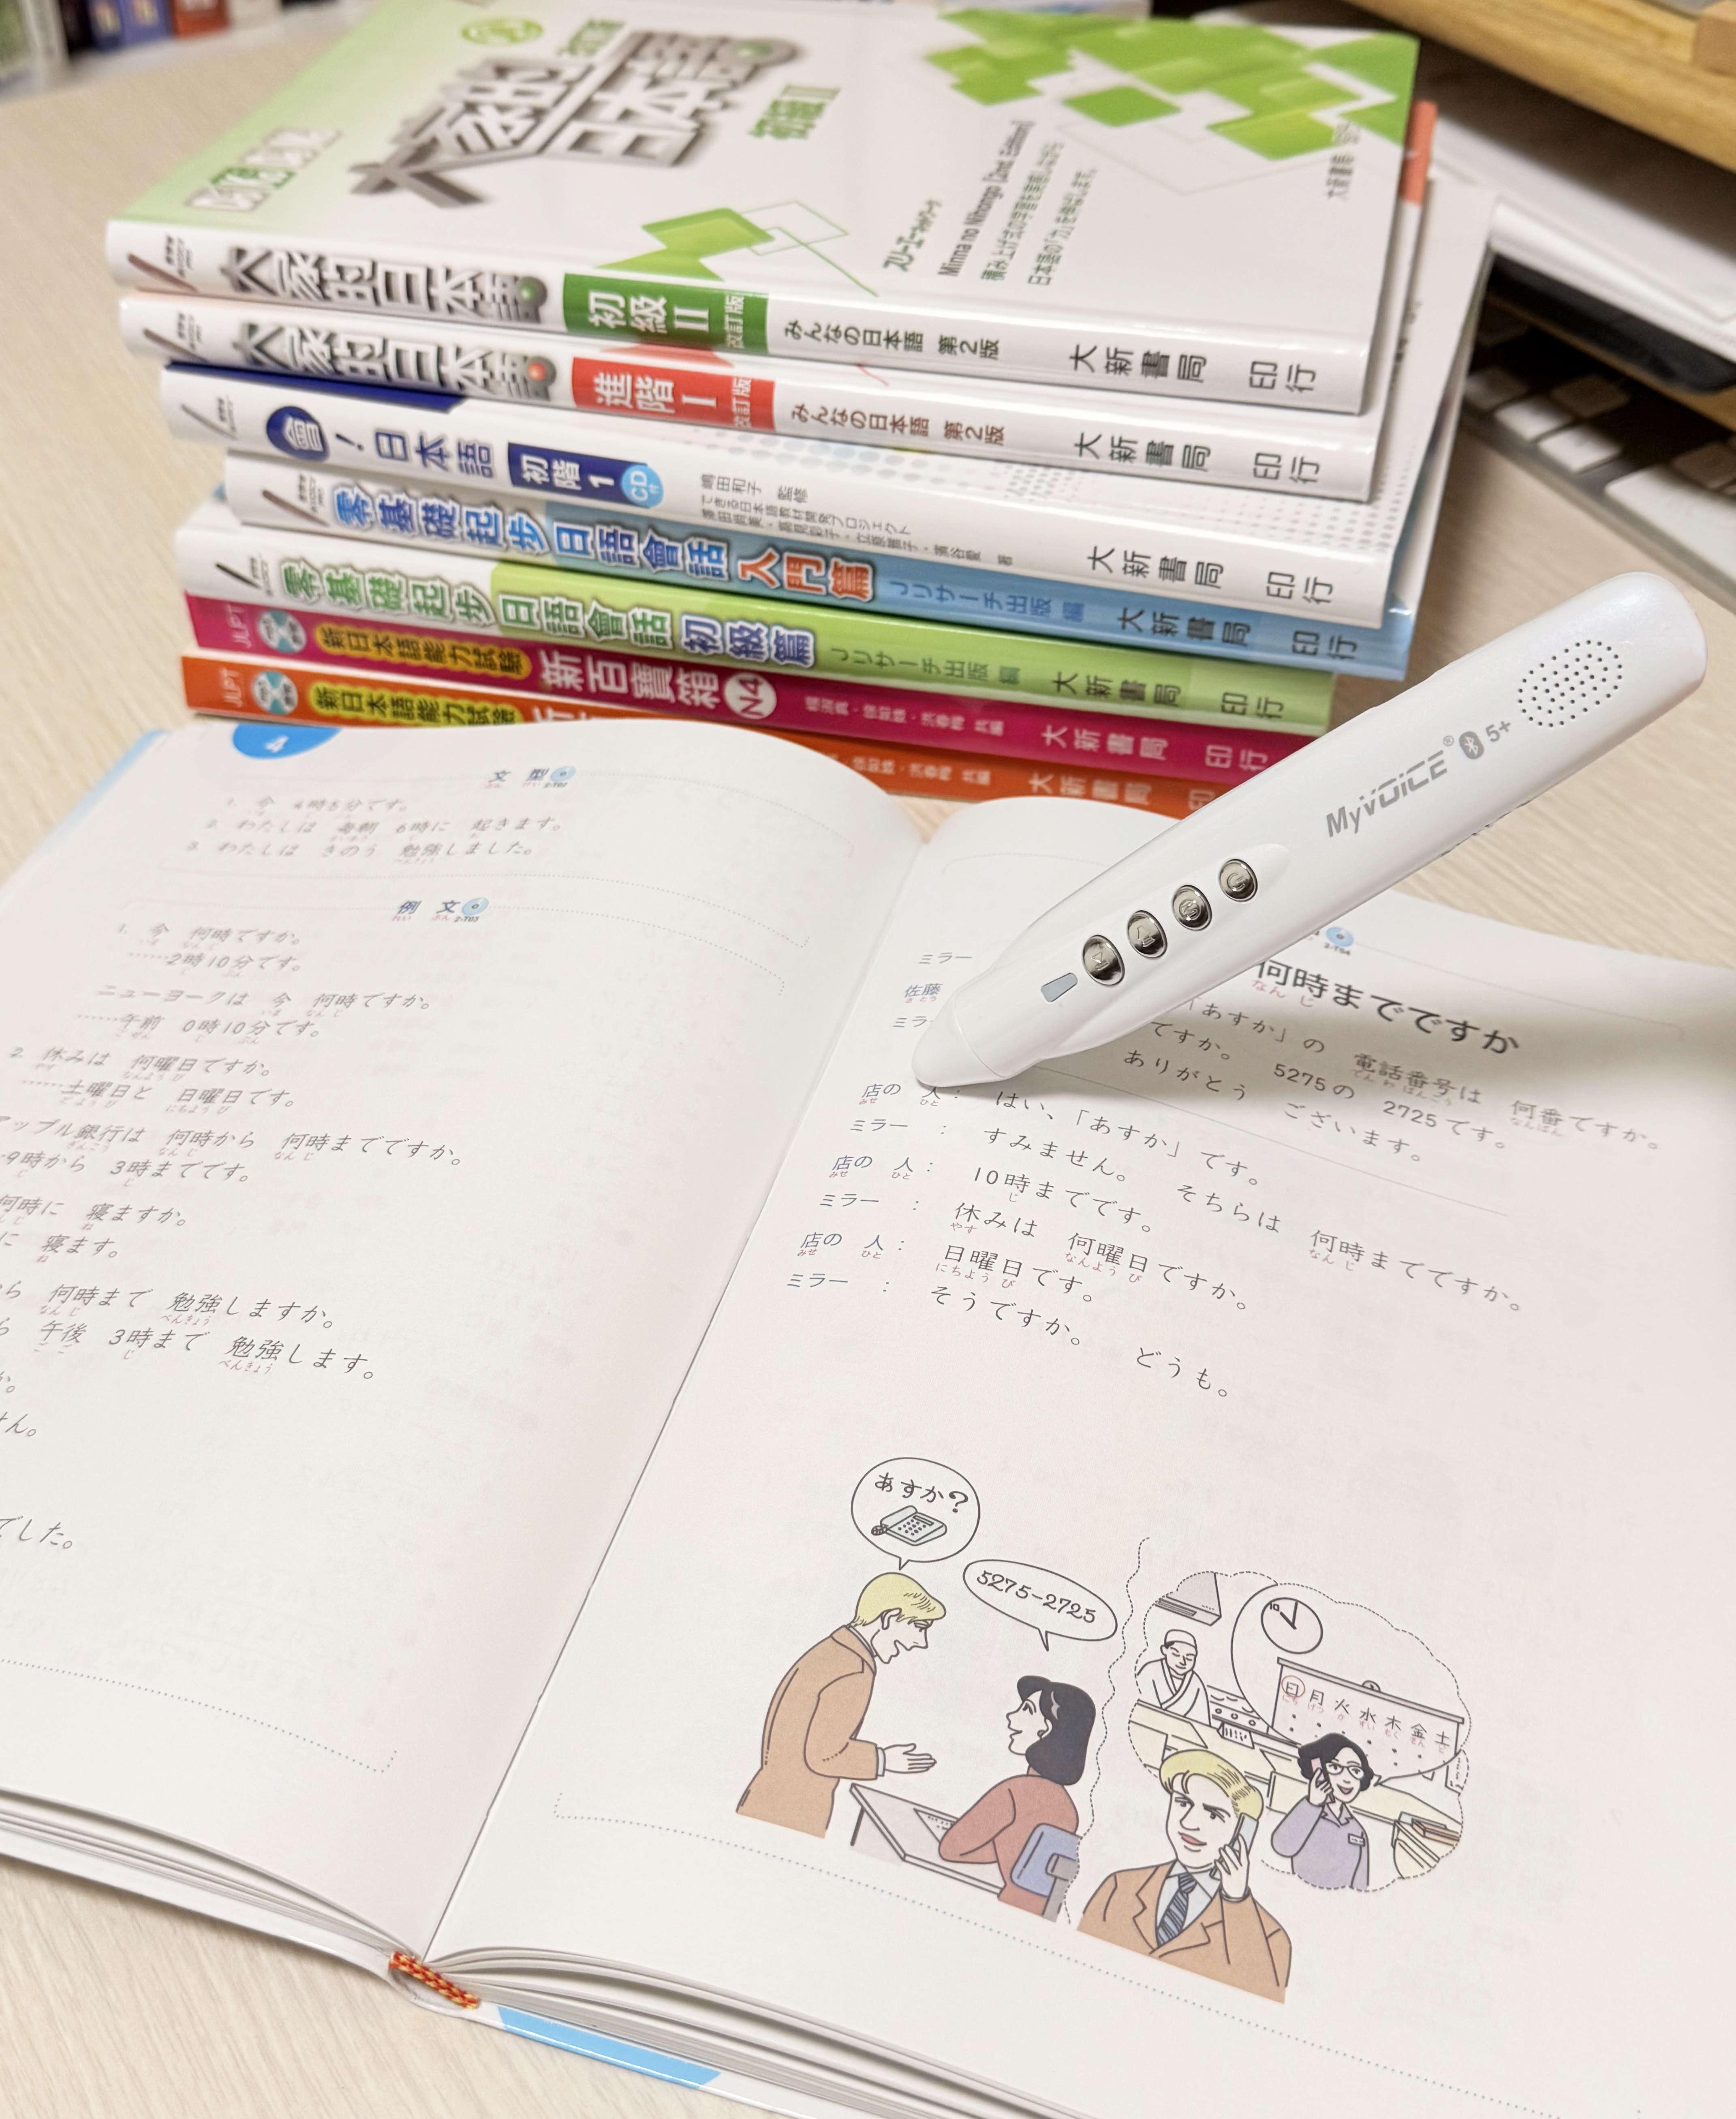 大家的日本語
改訂版
初級II
スリーエーネットワーク
Minna no Nihongo [2nd Edition]
積み上げ式の学習を実感しながら
日本語の「力」を伸ばします。
大新書局 印行
大家的日本語 初級II 改訂版 みんなの日本語 第2版 大新書局 印行
大家的日本語 進階I 改訂版 みんなの日本語 第2版 大新書局 印行
會!日本語 初階1 CD付 嶋田和子 監修 できる日本語教材開発プロジェクト 著 大新書局 印行
零基礎起步日語會話 入門篇 Jリサーチ出版 編 大新書局 印行
零基礎起步日語會話 初級篇 Jリサーチ出版 編 大新書局 印行
JLPT 新日本語能力試驗 新百寶箱 N4 共編 大新書局 印行
JLPT 新日本語能力試驗 共編 大新書局 印
MyVOICE® 5+
4
文型 2-T02
1. 今 4時5分です。
2. わたしは 毎朝 6時に 起きます。
3. わたしは きのう 勉強しました。
例文 2-T03
1. 今 何時ですか。
……2時10分です。
ニューヨークは 今 何時ですか。
……午前 0時10分です。
2. 休みは 何曜日ですか。
……土曜日と 日曜日です。
アップル銀行は 何時から 何時までですか。
9時から 3時までです。
何時に 寝ますか。
に 寝ます。
ら 何時まで 勉強しますか。
ら 午後 3時まで 勉強します。
か。
せん。
でした。
2-T04
何時までですか
ミラー
「あすか」の 電話番号は 何番ですか。
佐藤
ですか。 5275の 2725です。
ミラ
ありがとう ございます。
店の 人: はい、「あすか」です。
ミラー : すみません。 そちらは 何時までですか。
店の 人: 10時までです。
ミラー : 休みは 何曜日ですか。
店の 人: 日曜日です。
ミラー : そうですか。 どうも。
あすか?
5275-2725
10
日 月 火 水 木 金 土